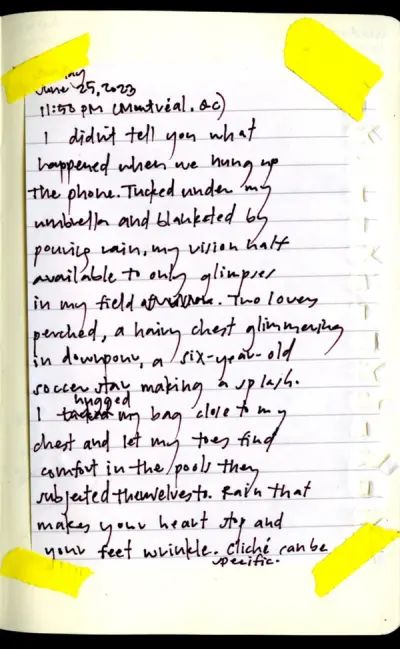 day
June 25, 2023
11:53 PM (Montréal, QC)
I didn't tell you what
happened when we hung up
the phone. Tucked under my
umbrella and blanketed by
pouring rain, my vision half
available to only glimpses
in my field of vision. Two lovers
perched, a hairy chest glimmering
in downpour, a six-year-old
soccer star making a splash.
hugged
I tucked my bag close to my
chest and let my toes find
comfort in the pools they
subjected themselves to. Rain that
makes your heart stop and
your feet wrinkle. Cliché can be
specific.